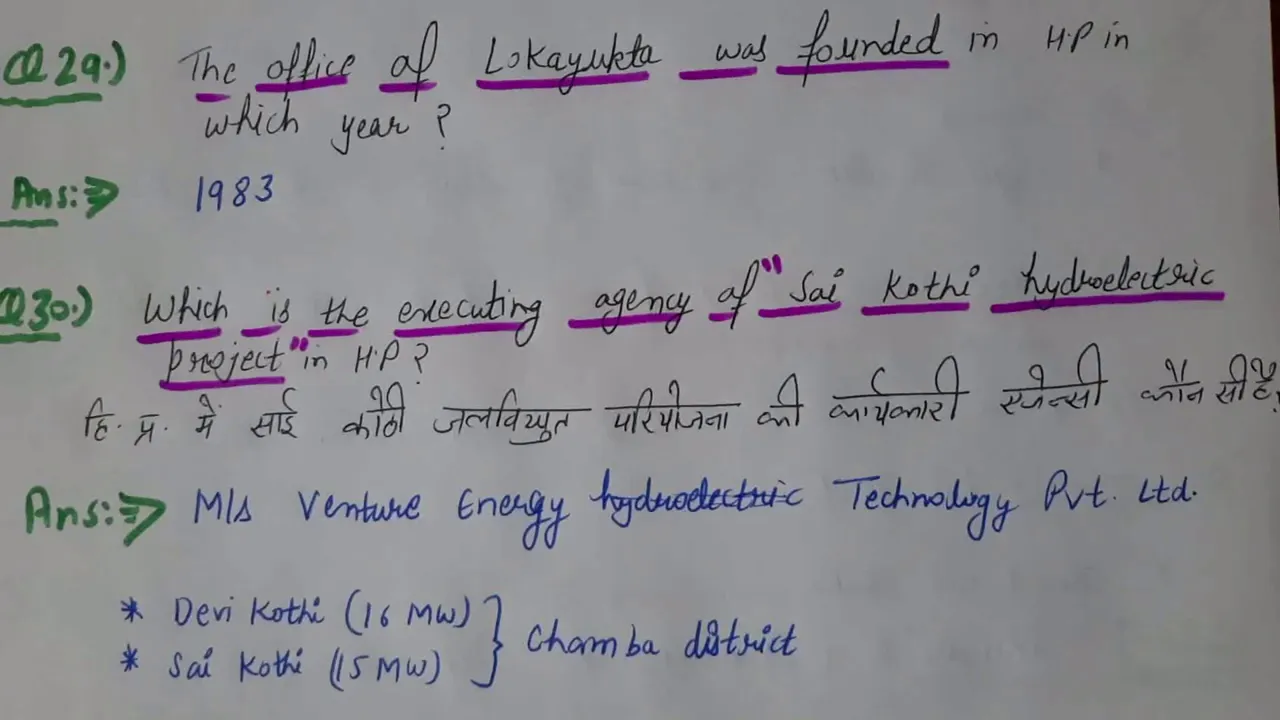 Q29.) The office of Lokayukta was founded in H.P in
which year ?
Ans:⇒ 1983
Q30.) Which is the executing agency of "Sai Kothi hydroelectric
project" in H.P ?
हि. प्र. में साई कोठी जलविद्युत परियोजना की कार्यकारी एजेन्सी कौन सी है?
Ans:⇒ M/s Venture Energy hydroelectric Technology Pvt. Ltd.
* Devi Kothi (16 MW)
* Sai Kothi (15 MW) } Chamba district